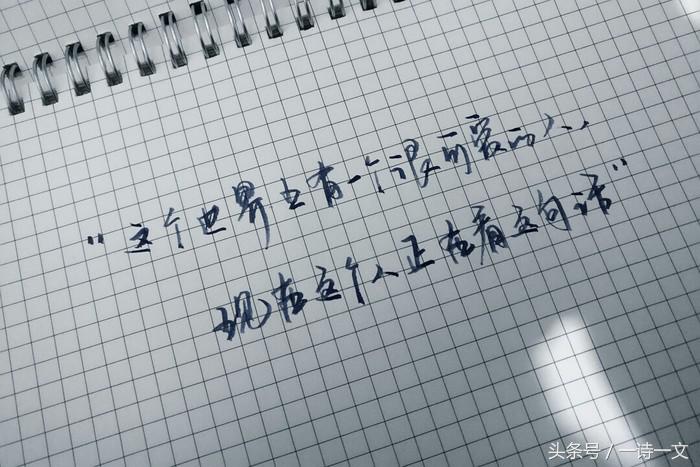 “这个世界上有一个很可爱的人、
现在这个人正在看这句话”
头条号/一诗一文